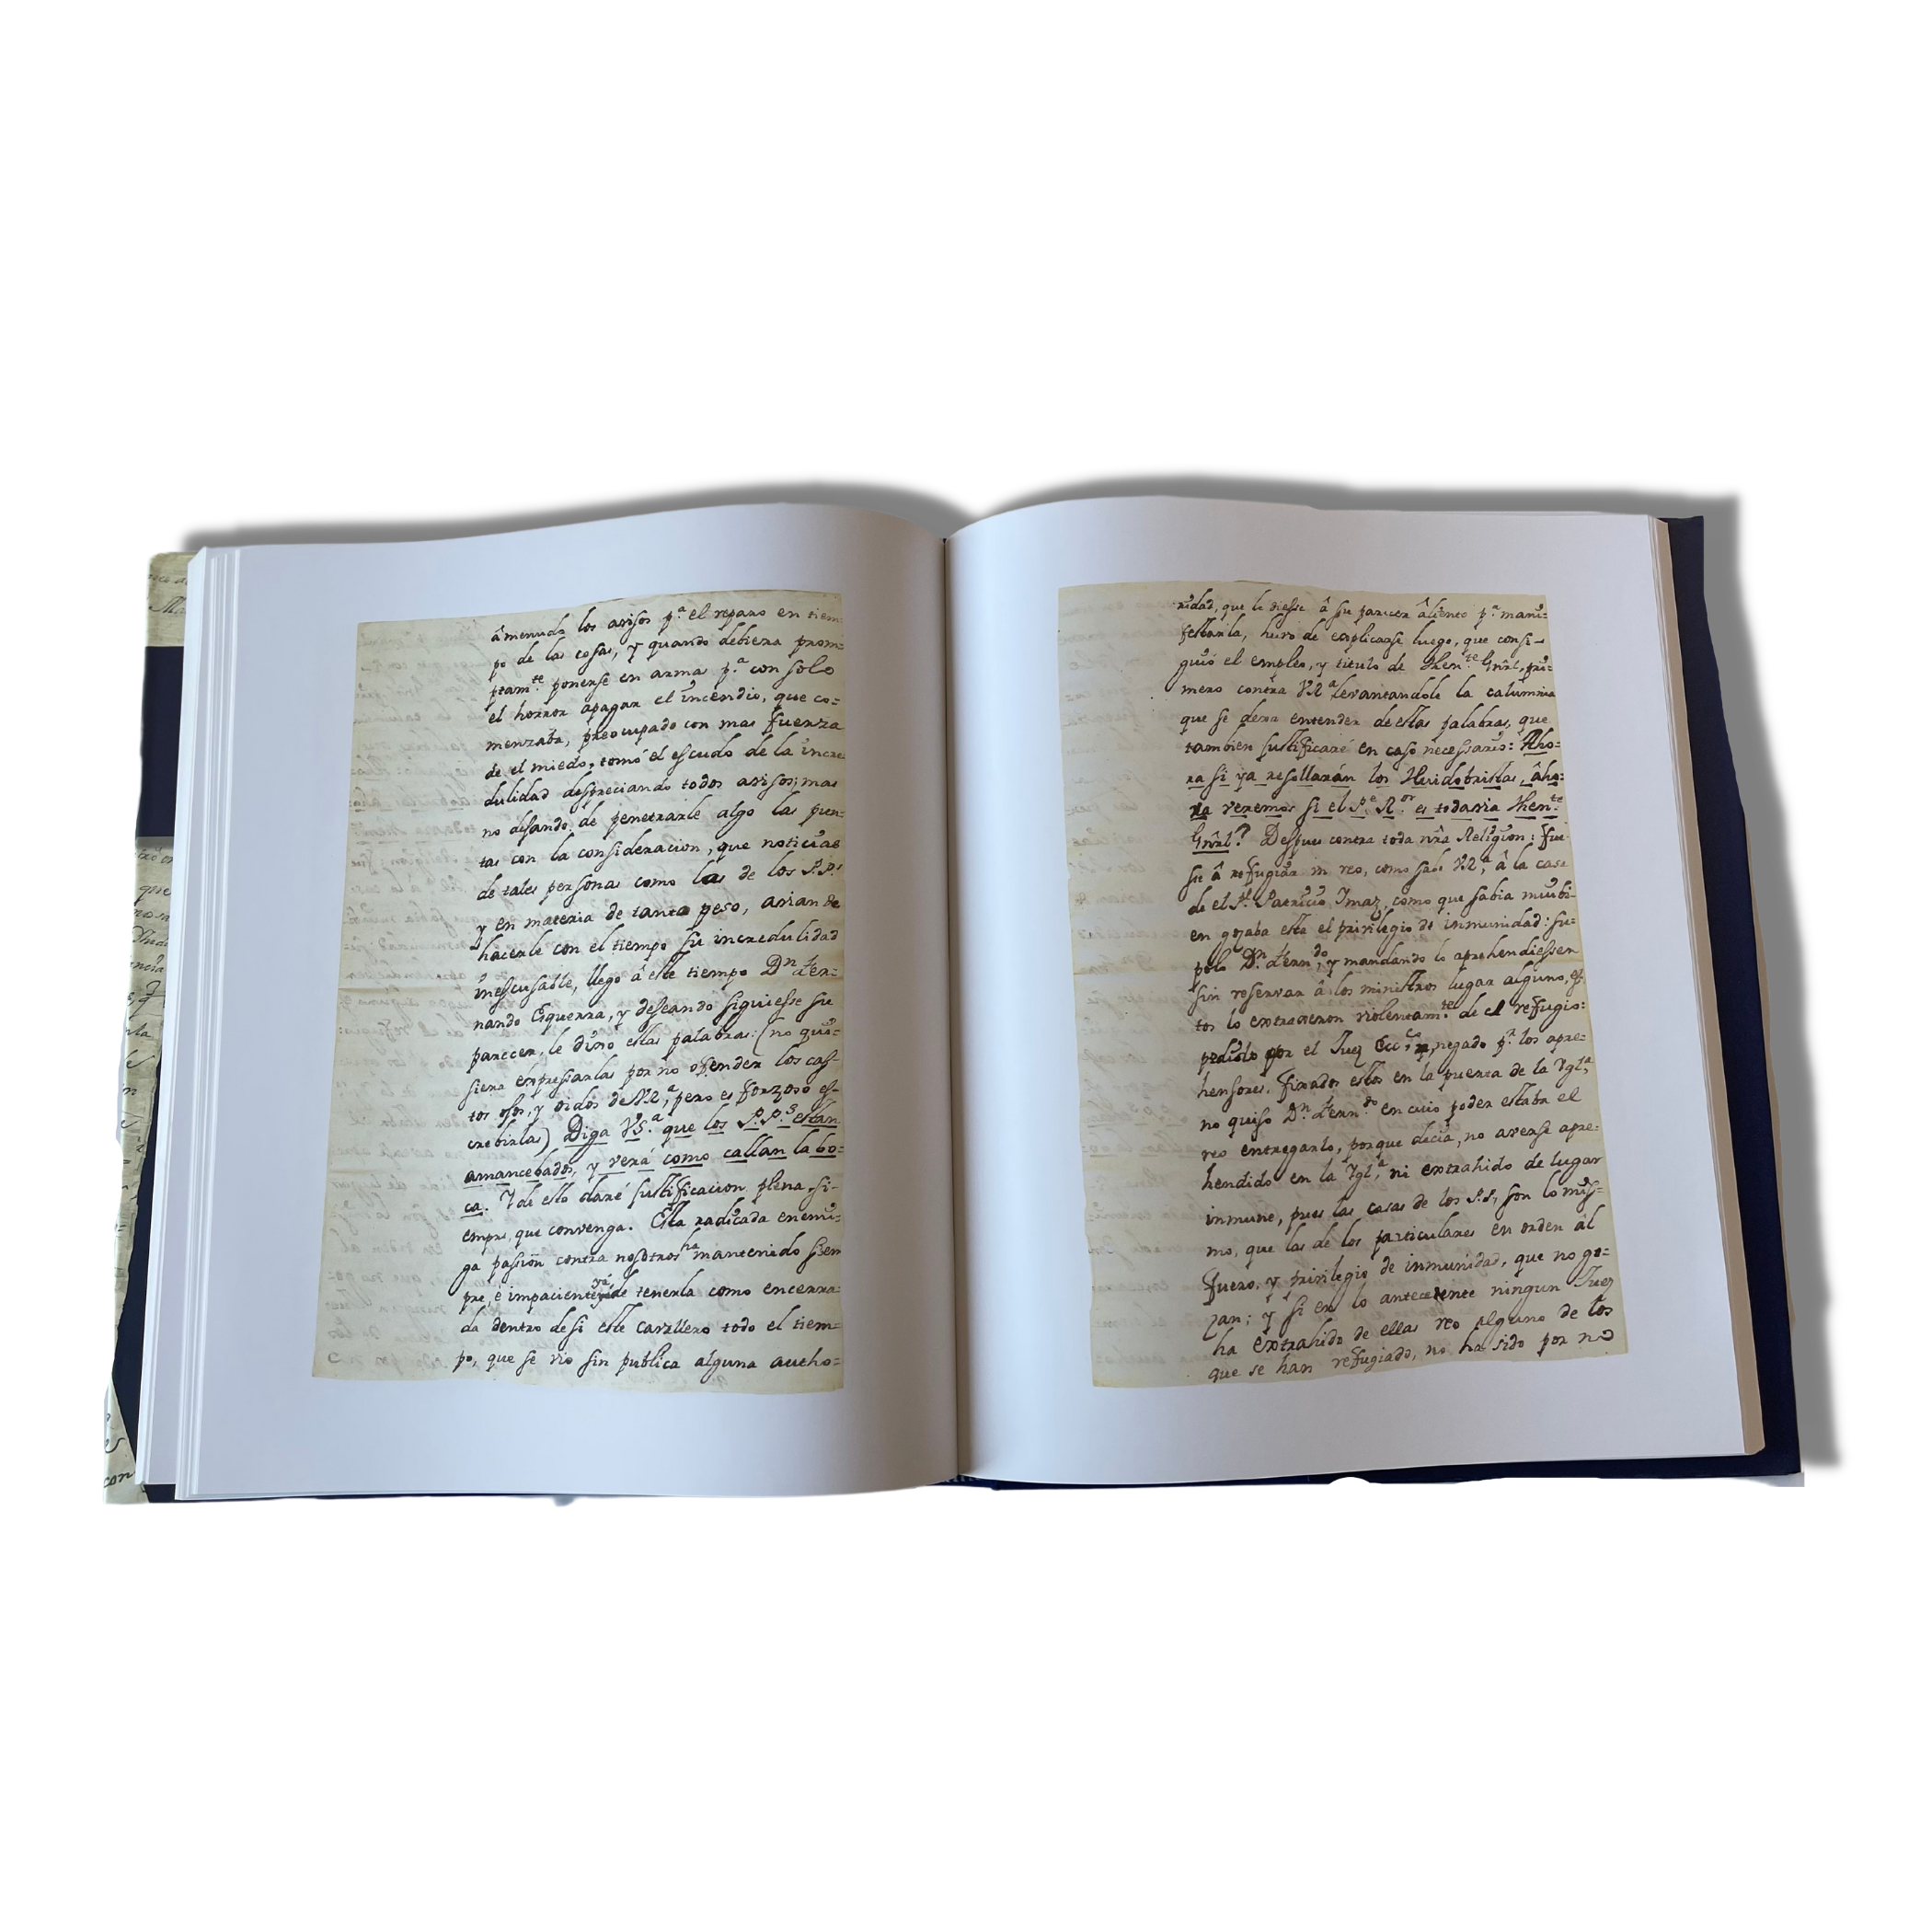 â menudo los avisos p.ª el reparo en tiem=
po de las cosas, y quando debiera prom=
ptam.te ponerse en arma p.ª con solo
el horror apagar el incendio, que co=
menzaba, preocupado con mas fuerza
de el miedo, tomó el escudo de la incre
dulidad despreciando todos avisos; mas
no dejando de penetrarle algo las pun=
tas con la consideracion, que noticias
de tales personas como las de los P.P.s
y en materia de tanto peso, avian de
hacerle con el tiempo su incredulidad
inescusable, llegó â este tiempo D.n Fer=
nando Esquerra, y deseando siguiesse su
parecer, le dixo estas palabras: (no qui=
siera expressarlas por no ofender los cas=
tos ojos, y oidos de V.R.ª, pero es forzoso es=
crebirlas) Diga V.S.ª que los P.P.s estan
amancebados, y verá como callan la bo=
ca. Y de esto daré justificacion plena, si=
empre, que convenga. Esta radicada enemi=
ga passion contra nosotros ha mantenido siem
pre, é impaciente ya de tenerla como encerra=
da dentro de si este cavallero todo el tiem=
po, que se vio sin publica alguna autho=
ridad, que le diesse â su parecer âliento p.ª mani=
festarla, huvo de explicarse luego, que consi=
guió el empleo, y titulo de Then.te Gnrl, pri=
mero contra V.R.ª levantandole la calumnia
que se dexa entender de estas palabras, que
tambien justificaré en caso necessario: Aho=
ra si ya resollarán los Huidobristas, âho=
ra veremos si el P.e R.or es todavia Then.te
Gnrl? Despues contra toda nrâ Religion: fue
se â refugiar un reo, como sabe V.R.ª, â la casa
de el P. Patricio Imaz, como que sabia mui bi=
en gozaba esta el privilegio de inmunidad: su=
polo D.n Fern.do, y mandando lo aprehendiessen
sin reservar â los ministros lugar alguno, es=
tos lo extraxeron violentam.te de el refugio:
pidiolo por el Juez Ecc.co, negado p.ª los apre=
hensores, fixados estos en la puerta de la Ygl.ª,
no quiso D.n Fern.do en cuio poder estaba el
reo entregarlo, porque decia, no averse apre=
hendido en la Ygl.ª, ni extrahido de lugar
inmune, pues las casas de los P.P. son lo mis=
mo, que las de los particulares en orden âl
fuero, y privilegio de inmunidad, que no go=
zan; y si en lo antecedente ningun Juez
ha extrahido de ellas reo alguno de los
que se han refugiado, no ha sido por no